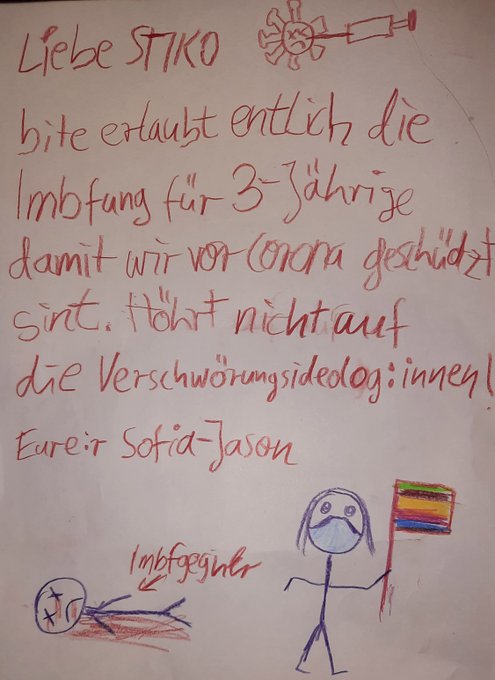 Liebe STIKO
bite erlaubt entlich die
Imbfung für 3-Jährige
damit wir vor Corona geschüdzt
sint. Höhrt nicht auf
die Verschwörungsideolog:innen!
Eure:r Sofia-Jason
Imbfgegner